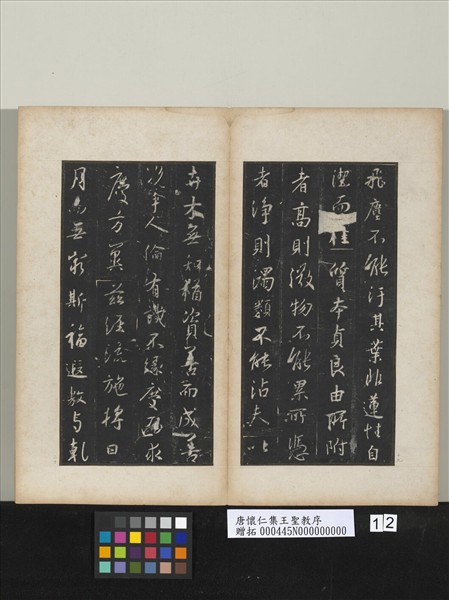 飛塵不能汙其葉非蓮性自
潔而桂質本貞良由所附
者高則微物不能累所憑
者淨則濁類不能沾夫以
卉木無知猶資善而成善
況乎人倫有識不緣慶而求
慶方冀茲經流施將日
月而無窮斯福遐敷与乾
唐懷仁集王聖教序
贈拓 000445N000000000
12